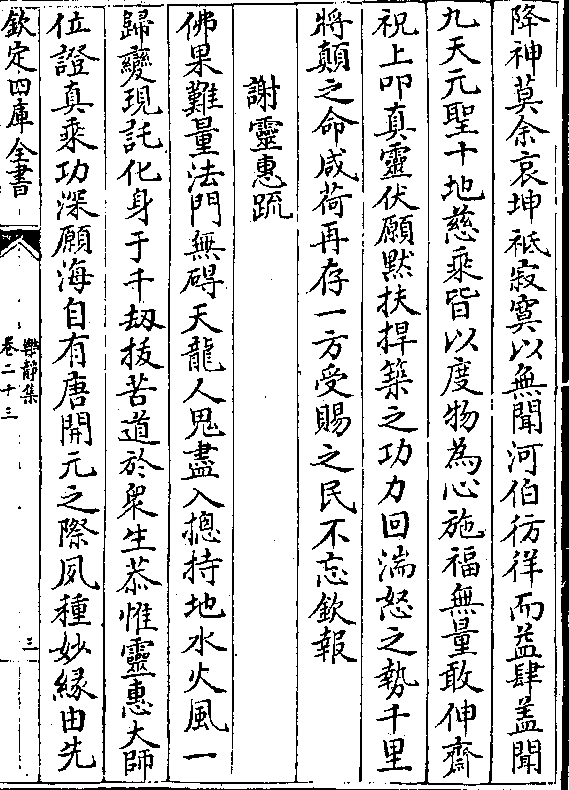 降神莫余哀坤祗寂寞以無聞河伯彷徉而益肆盖聞
九天元聖十地慈乘皆以度物為心施福無量敢伸齋
祝上叩真靈伏願黙扶捍築之功力回湍怒之勢千里
將顛之命咸荷再存一方受賜之民不忘欽報
謝靈惠䟽
佛果難量法門無碍天龍人鬼盡入揔持地水火風一
歸變現託化身于千刼拔苦道於衆生恭惟靈惠大師
位證真乘功深願海自有唐開元之際夙種妙緣由先
欽定四庫全書
樂静集
卷二十三
三